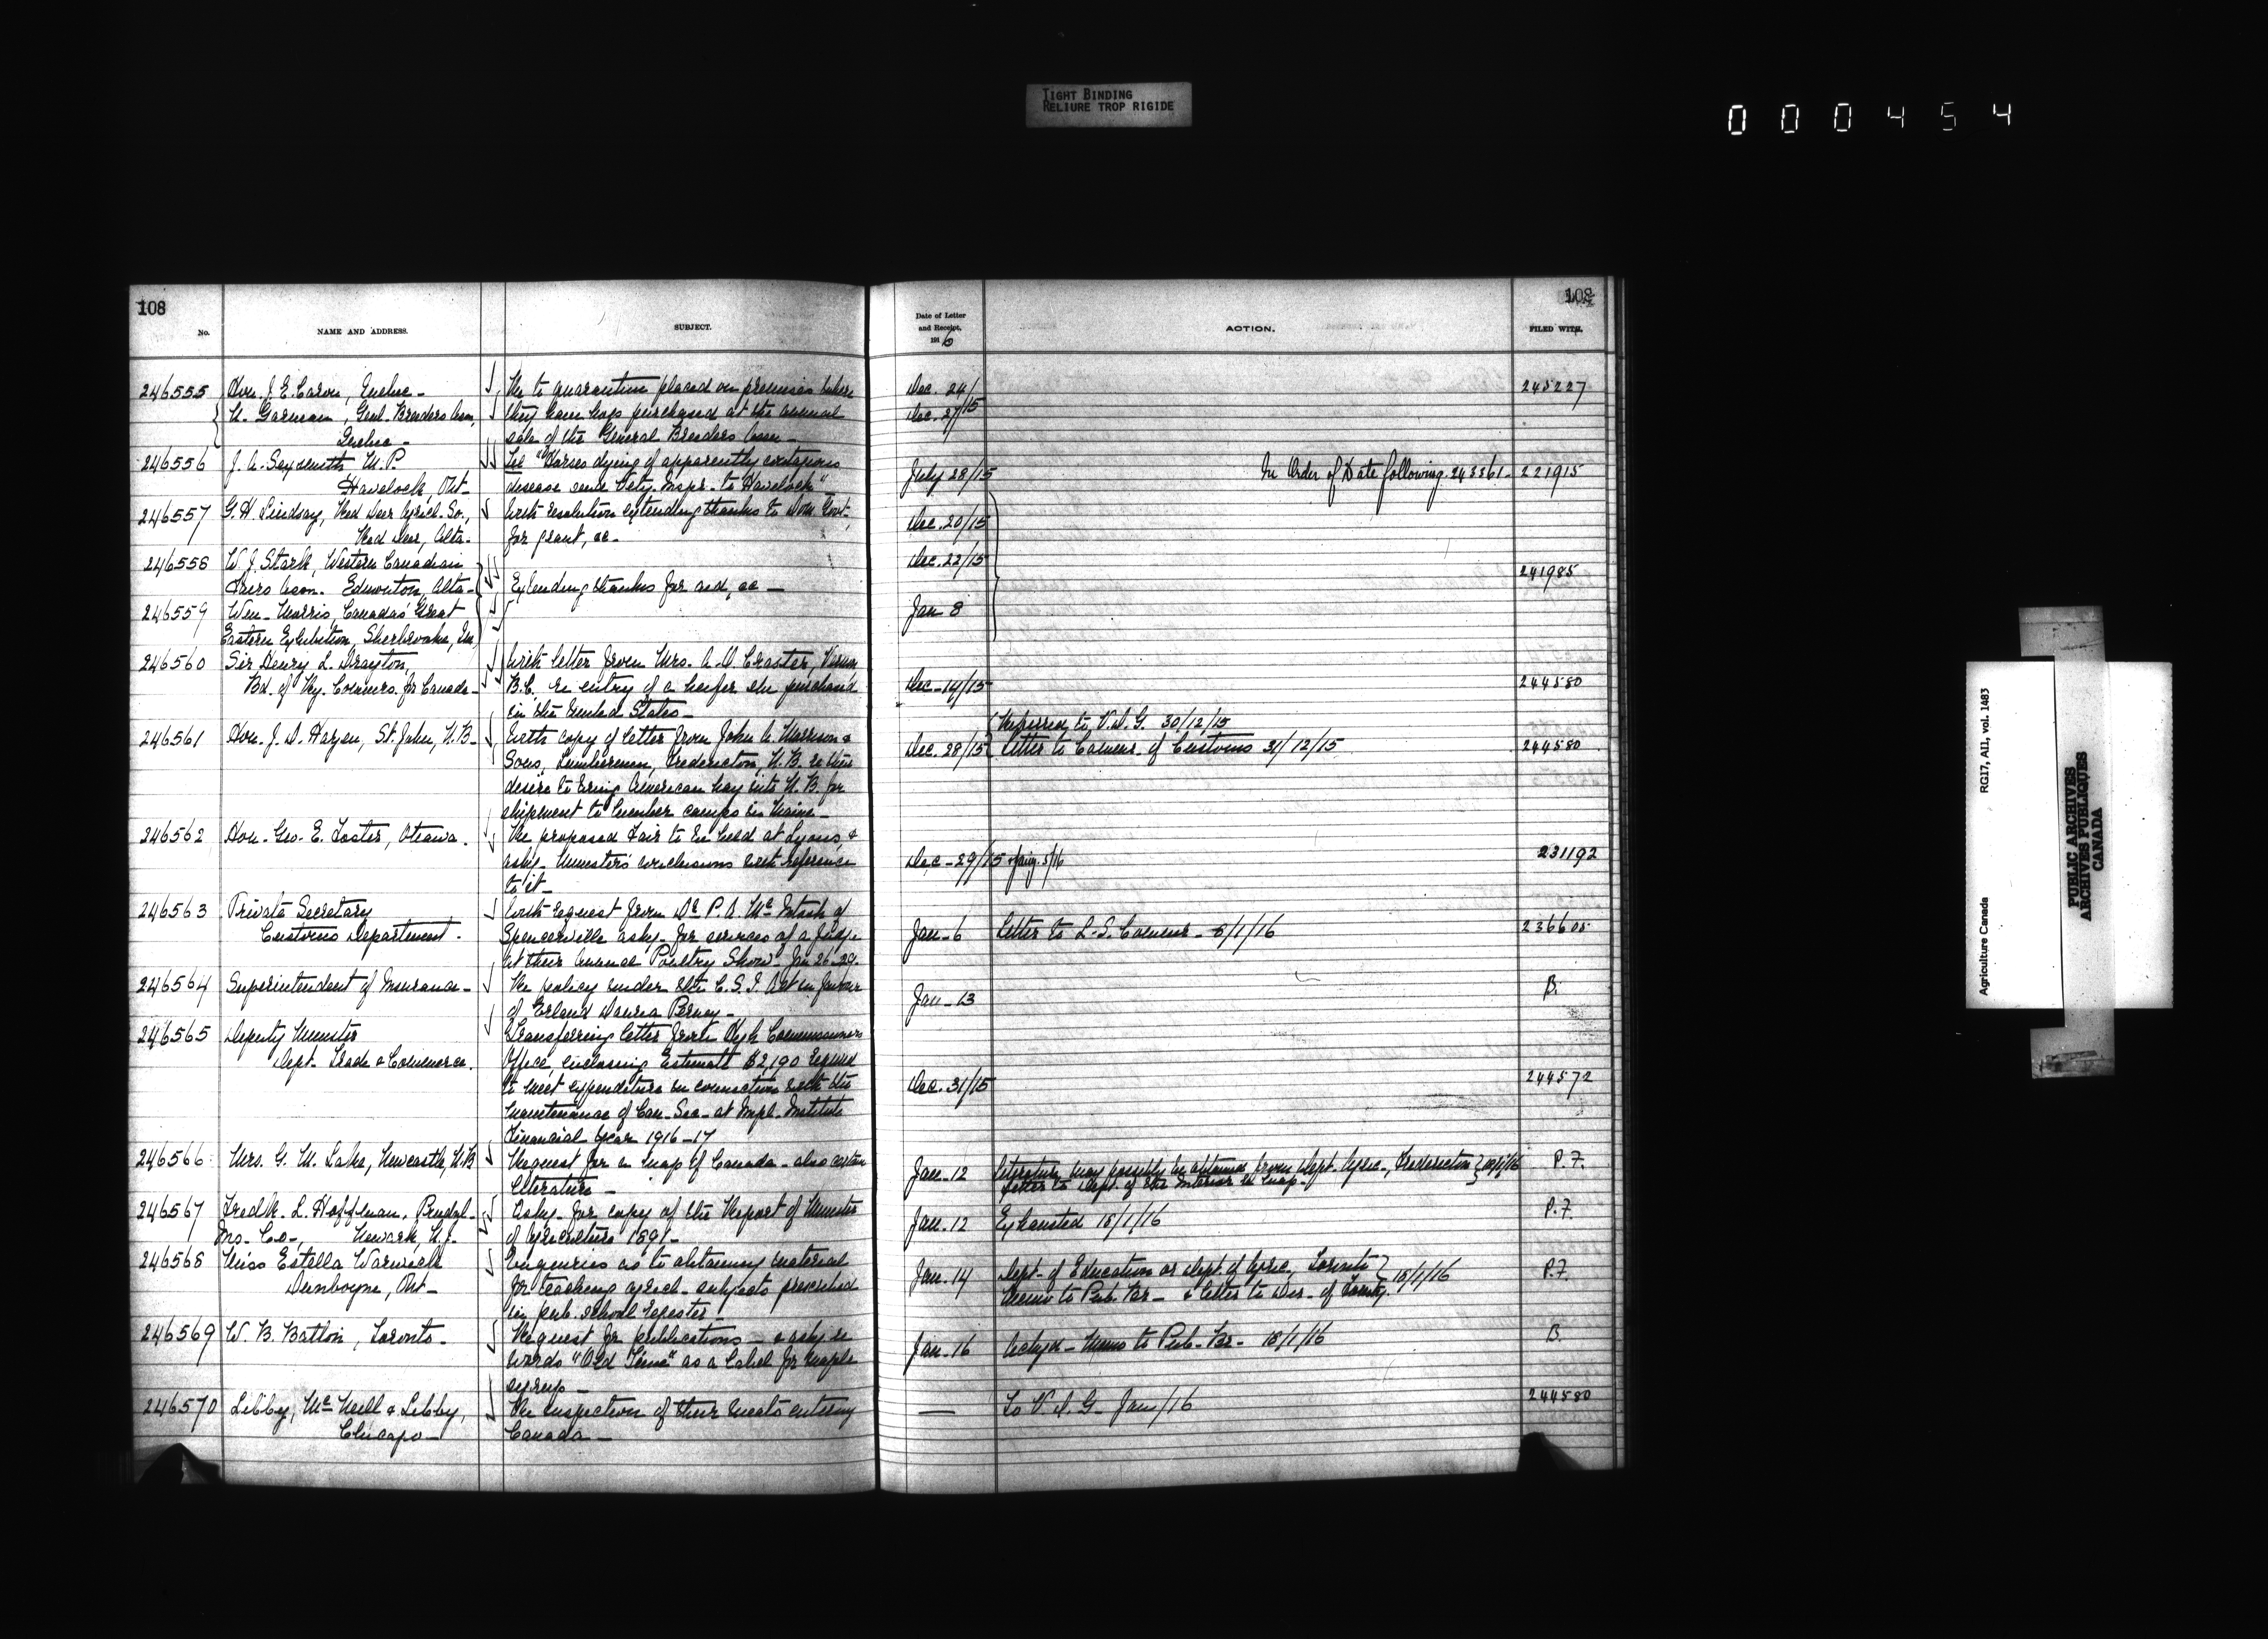 TIGHT BINDING
RELIURE TROP RIGIDE
000454
108
No.
NAME AND ADDRESS.
SUBJECT.
246555 Hon. J. E. Caron, Quebec - Re to quarantine placed on premises where
A. Garman, Genl. Breeders Assn, they have hogs purchased at the annual
Quebec - sale of the General Breeders Assn -
246556 J. A. Sexsmith M.P. Tel "Horses dying of apparently contagious
Havelock, Ont - disease send Vety. Inspr. to Havelock" -
246557 G. H. Lindsay, Red Deer Agricl. So., With resolution extending thanks to Dom Govt.
Red Deer, Alta - for grant, &c -
246558 W. J. Stark, Western Canadian
Fairs Assn. Edmonton, Alta - Extending thanks for aid, &c -
246559 Wm. Morris, Canada's Great
Eastern Exhibition, Sherbrooke, Que
246560 Sir Henry L. Drayton, With letter from Mrs. A. O. Craster, Vernon
Bd. of Ry. Commrs. for Canada - B.C. re entry of a heifer she purchased
in the United States -
246561 Hon. J. D. Hazen, St. John, N.B - With copy of letter from John A. Morrison &
Sons, Lumbermen, Fredericton, N.B. re their
desire to bring American hay into N.B. for
shipment to lumber camps in Maine -
246562 Hon. Geo. E. Foster, Ottawa. Re proposed Fair to be held at Lyons, &
askg. Minister's conclusions with reference
to it -
246563 Private Secretary With request from Dr. P. A. McIntosh of
Customs Department. Spencerville askg. for services of a Judge
at their annual Poultry Show - Jan 26-29.
246564 Superintendent of Insurance - Re policy under the C.S.I. Act in favour
of Erland Perney -
246565 Deputy Minister Transferring letter from High Commissioners
Dept. Trade & Commerce. Office, enclosing Estimate $2,190 required
to meet expenditure in connection with the
maintenance of Can. Sec - at Impl. Institute
Financial Year 1916-17
246566 Mrs. G. M. Lake, Newcastle, N.B Request for a map of Canada - also certain
literature -
246567 Fredk. L. Hoffman, Prudol. Askg. for copy of the Report of Minister
Ins. Co-, Newark, N.J. of Agriculture 1891 -
246568 Miss Estella Warwick Enquiries as to obtaining material
Dunboyne, Ont - for teaching agricl. subjects prescribed
in pub. school register -
246569 W. B. Batton, Toronto - Request for publications - & askg. re
words "Old Time" as a label for maple
syrup -
246570 Libby, McNeill & Libby, Re inspection of their meats entering
Chicago - Canada -
108
Date of Letter
and Receipt.
1916
ACTION.
FILED WITH.
Dec. 24/ 245227
Dec. 27/15
July 28/15 In Order of Date following 243561 - 221915
Dec. 20/15
Dec. 22/15
241985
Jan 8
Dec - 14/15 244580
Referred to V.D.G. 30/12/15
Dec. 28/15 Letter to Commr. of Customs 31/12/15 244580
Dec - 29/15 & Jany. 5/16 231192
Jan - 6 Letter to L.S. Commr - 8/1/16 236605
Jan - 13 B.
Dec. 31/15 244572
Jan - 12 Literature may possibly be obtained from Dept. Agric., Fredericton P.F.
Letter to Dept. of the Interior re map -
Jan. 12 Exhausted 18/1/16 P.F.
Jan - 14 Dept. of Education or Dept. of Agric., Toronto 18/1/16 P.F.
Memo to Pub. Br - & letter to Dir - of Forestry
Jan - 16 Ackgd - Memo to Pub. Br - 18/1/16 B.
— To V.D.G - Jan/16 244580
Agriculture Canada RG17, AII, vol. 1483
PUBLIC ARCHIVES
ARCHIVES PUBLIQUES
CANADA